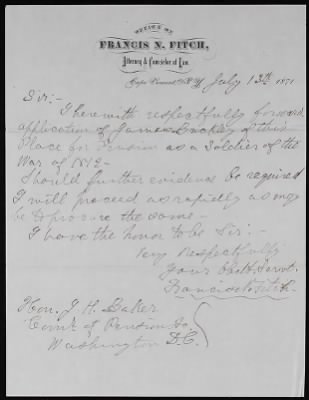 OFFICE OF
FRANCIS N. FITCH,
Attorney & Councelor at Law.
Cape Vincent, N.Y. July 13th 1871
Sir:-
I herewith respectfully forward
application of James Buckley of this
Place for Pension as a Soldier of the
War of 1812-
Should further evidence be required
I will proceed as rapidly as may
be to procure the same-
I have the honor to be Sir:-
Very Respectfully
Your Obt. Servt.
Francis N. Fitch
Hon. J. H. Baker
Com. of Pensions
Washington D.C.